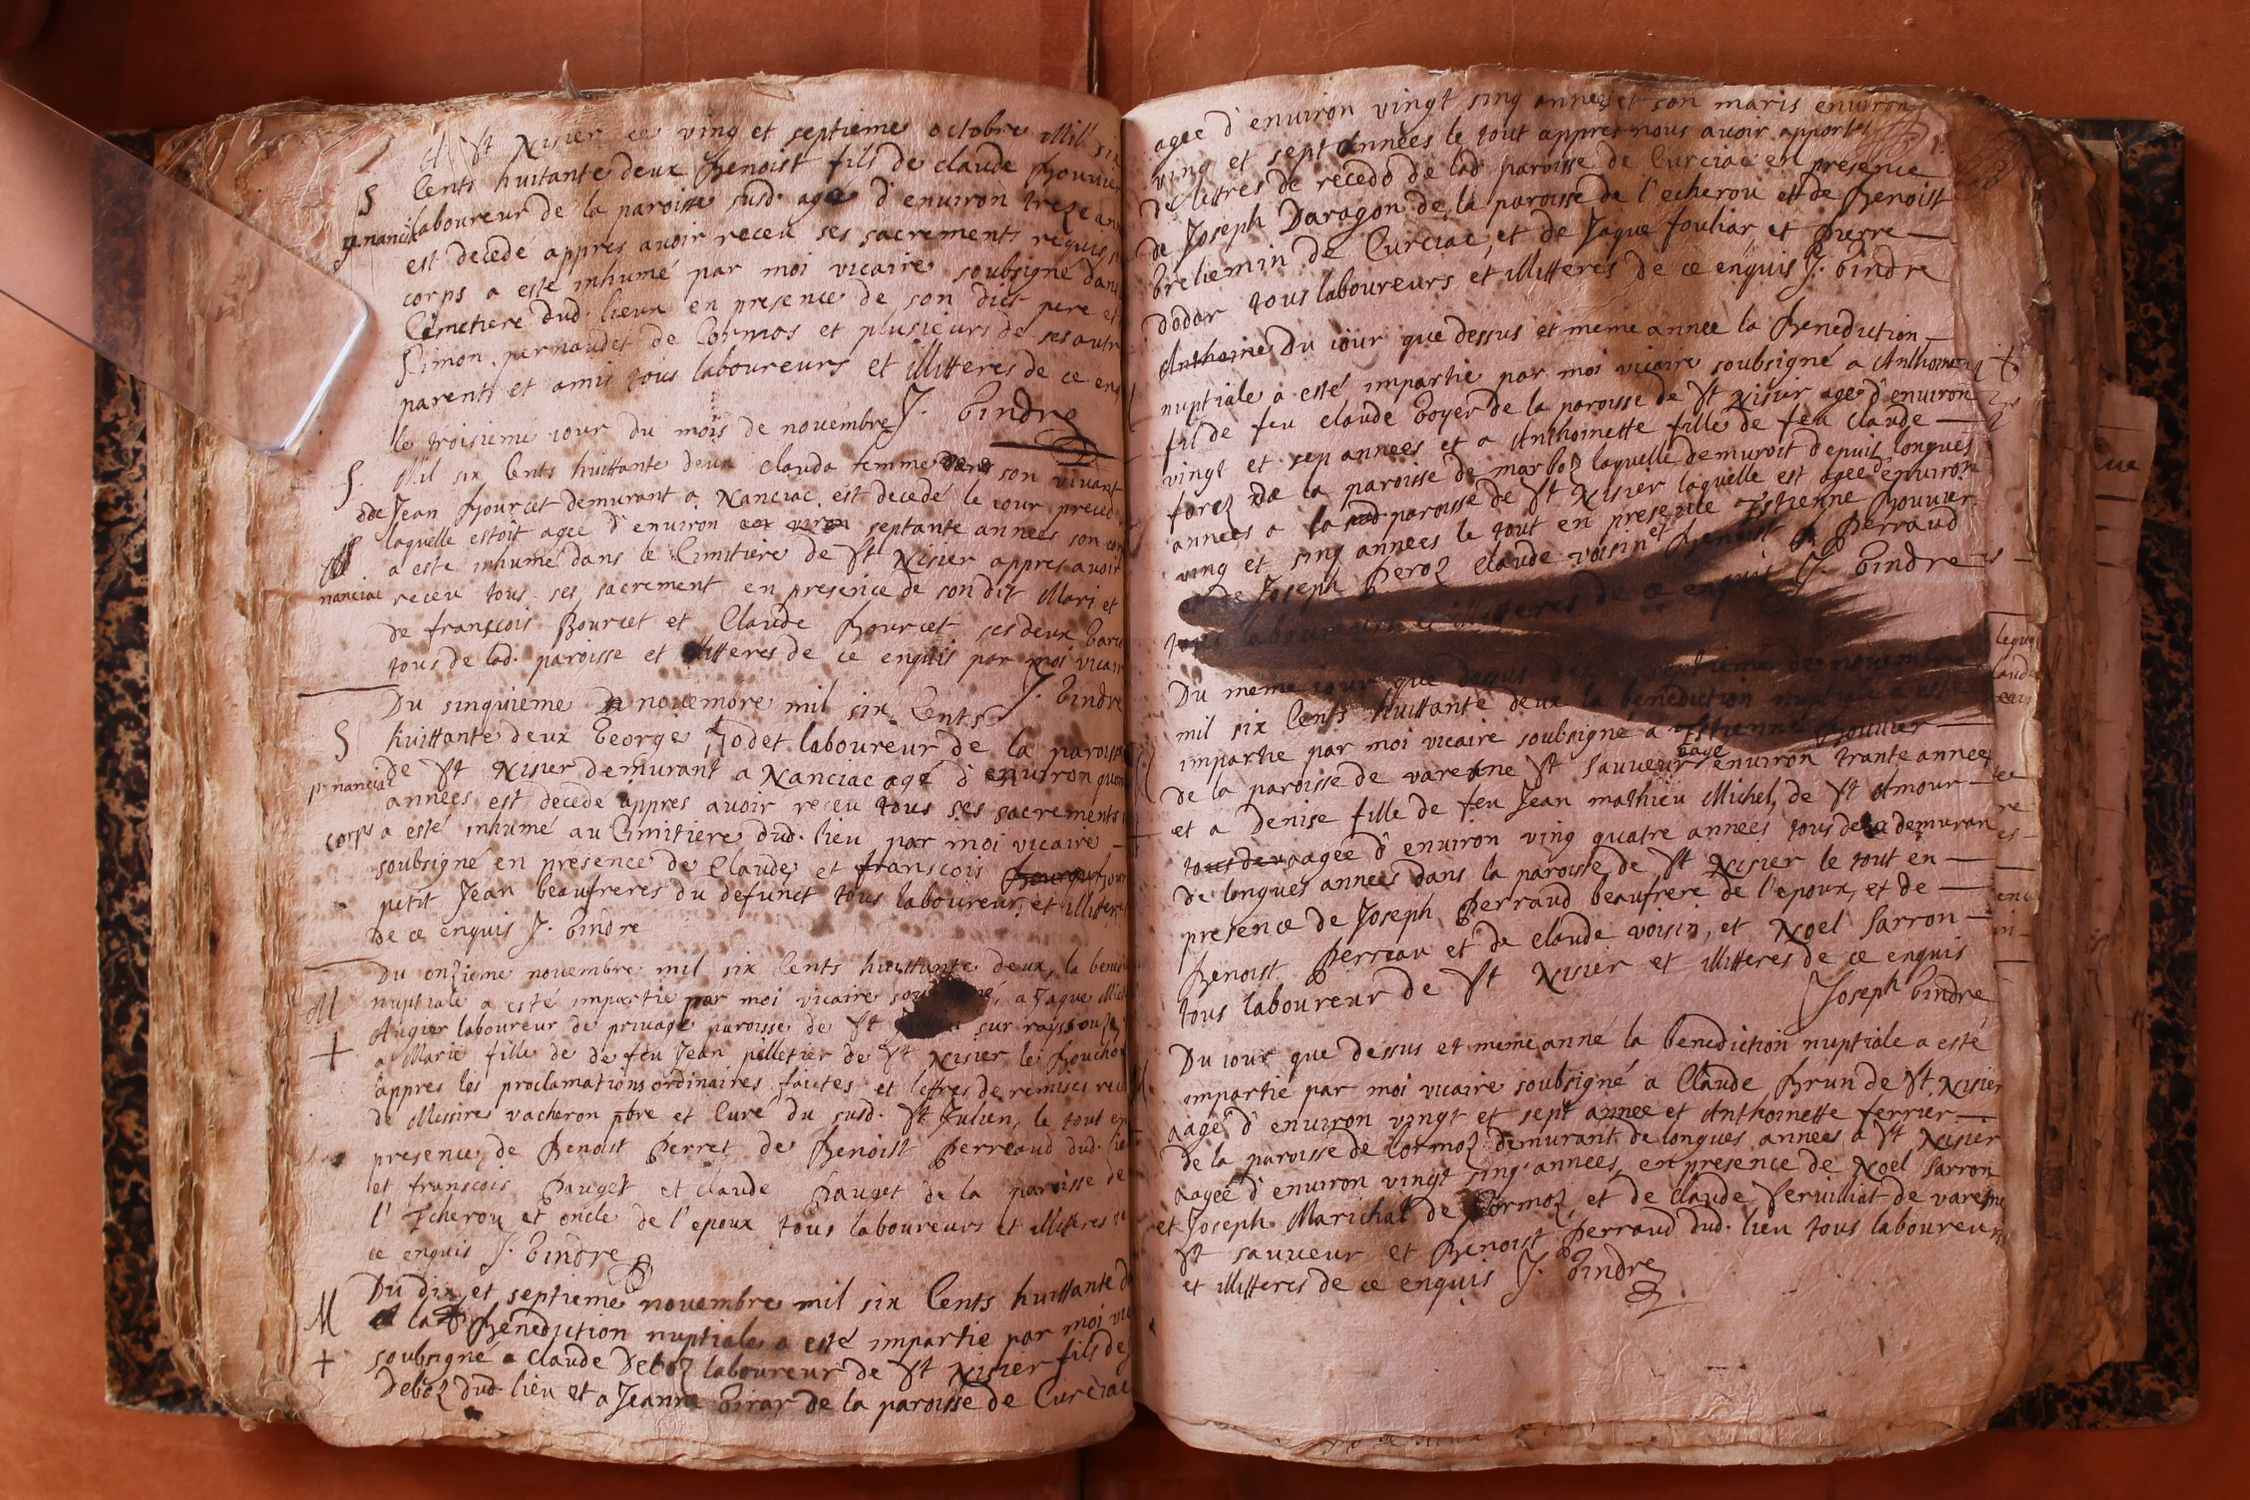 A St Nisier ce ving et septieme octobre Mil six
S Cents huitante deux Benoist fils de claude Bouvier
p. nanciac laboureur de la paroisse susd. agee d'environ treze an
est decedé appres avoir receu ses sacrements requis
corps a esté inhumé par moi vicaire soubsigné dans
Cimetiere dud. lieux en presence de son dict pere et
Simon pernaudet de Cormos et plusieurs de ses autr
parents et amis tous laboureurs et illitteres de ce en
J. Bindre
le troisieme iour du mois de novembre
S. Mil six Cents huittante deux clauda femme dans son vivant
de Jean Bourcet demurant a Nanciac est decedé le iour preced
laquelle estoit agee d'environ septante annees son cor
a esté inhumé dans le Cimitiere de St Nisier appres avoir
nanciac receu tous ses sacrement en presence de son dit Mari et
de françois Bourcet et Claude Bourcet ses deux
tous de lad. paroisse et illitteres de ce enquis par moi vicair
J. Bindre
Du sinquieme novembre mil six Cents
S huittante deux George Jodet laboureur de la paroisse
p. nanciac de St Nisier demurant a Nanciac agé d'environ quar
annees est decedé appres avoir receu tous ses sacrements
corps a esté inhumé au Cimitiere dud. lieu par moi vicaire
soubsigné en presence de Claude et franscois
petit Jean beaufreres du defunct tous laboureur, et illitere
de ce enquis J. Bindre
Du onzieme novembre mil six Cents huittante deux, la bened
M nuptiale a esté impartie par moi vicaire a Jaque
+ Augier laboureur de privage paroisse de St sur raissouze
a Marie fille de de feu Jean pelletier de St Nisier le Bouchou
appres les proclamations ordinaires faites et lettres de remises
de Messire vacheron pbre et Curé du susd. St Julien, le tout en
presence, de Benoist Perret de Benoist Perreaud dud. lie
et franscois Pauget et claude Pauget de la paroisse de
l'Echerou et oncle de l'epoux tous laboureurs et illitteres
ce enquis J. Bindre
Du dix et septieme novembre mil six Cents huittante d
M la Benediction nuptiale a esté impartie par moi vic
+ soubsigné a claude Deboz laboureur de St Nisier fils de
Deboz dud. lieu et a Jeanne Girar de la paroisse de Curciac
agee d'environ vingt sinq annees et son maris environ
ving et sept Années le tout appres nous avoir apporté
de lettres de recedo de lad paroisse de Curciac en presence
de Joseph Daragon de la paroisse de l'echerou et de Benoist
breliemin de Curciac, et de Jaque fouliar, et Pierre
dodar tous laboureurs et illitteres de ce enquis J. Bindre
Anthoine Du iour que dessus et meme annee la Benediction
nuptiale a esté impartie par moi vicaire soubsigné a Anthoine
fil de feu claude boyer de la paroisse de St Nisier agé d'environ
vingt et sep annees et a Anthoinette fille de feu Claude
farez de la paroisse de marboz laquelle demuroit depuis longues
annees a la paroisse de St Nisier laquelle est agee d'environ
ving et sinq annees le tout en presence Estienne Bouvier
et de Joseph Peroz Claude voisin et Benoist Perraud
tous laboureurs et illitteres de ce enquis J. Bindre
Du meme iour que dessus de novembre
mil six Cents huittante deux la benediction nuptiale a esté
impartie par moi vicaire soubsigné a Estienne Bouvier
de la paroisse de varenne St Sauveur agé environ trante annees
et a denise fille de feu Jean mathieu Michel, de St Amour
aagée d'environ ving quatre annees tous demuran
de longues annees dans la paroisse de St Nisier le tout en
presence de Joseph Perraud beaufrere de l'epoux, et de
Benoist Perreau et de claude voisin, et Noel Sarron
tous laboureur de St Nisier et illitteres de ce enquis
Joseph Bindre
Du iour que dessus et meme anné la benediction nuptiale a esté
impartie par moi vicaire soubsigné a Claude Brun de St Nisier
aagé d'environ vingt et sept annee et Anthoinette ferrier
de la paroisse de Cormoz demurant de longues annees a St Nisier
aagee d'environ vingt sinq annees, en presence de Noel Sarron
et Joseph Marichal de Cormoz, et de claude verviliat de varenne
St sauveur et Benoist Perraud dud. lieu tous laboureurs
et illitteres de ce enquis J. Bindre